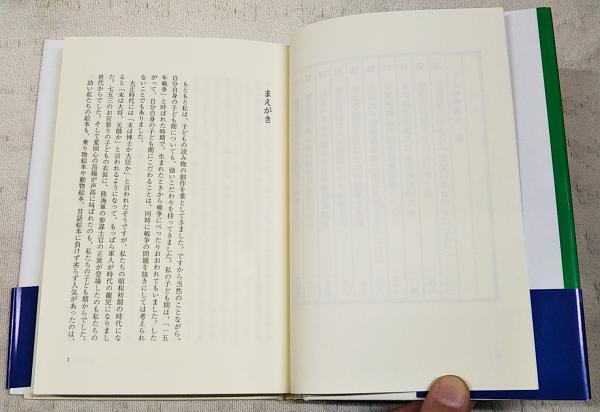 まえがき
もともと私は、子どもの読み物の創作を業としてきました。ですから当然のことながら、
自分自身の子ども期についても、強いこだわりを持ってきました。私の子ども期は、「一五
年戦争」と呼ばれた時期で、生まれたときから戦争にべったりおおわれてもいました。した
がって、自分自身の子ども期にこだわることは、同時に戦争の問題を抜きにしては考えられ
ないことでもありました。
大正時代には「末は博士か大臣か」と言われたそうですが、私たちの昭和初期の時代にな
ると「末は大将、元帥か」と言われるようになって、もっぱら軍人が時代の寵児になりまし
た。七五三のお宮参りの子どもの衣装に、陸海軍の参謀士官の正装が登場したのも私たちの
世代からでした。そして愛国心の昂揚が声高に叫ばれたのも、私たちの子ども期からでした。
幼い私たちの絵本も、乗り物絵本や動物絵本、昔話絵本に負けず劣らず人気があったのは、
1